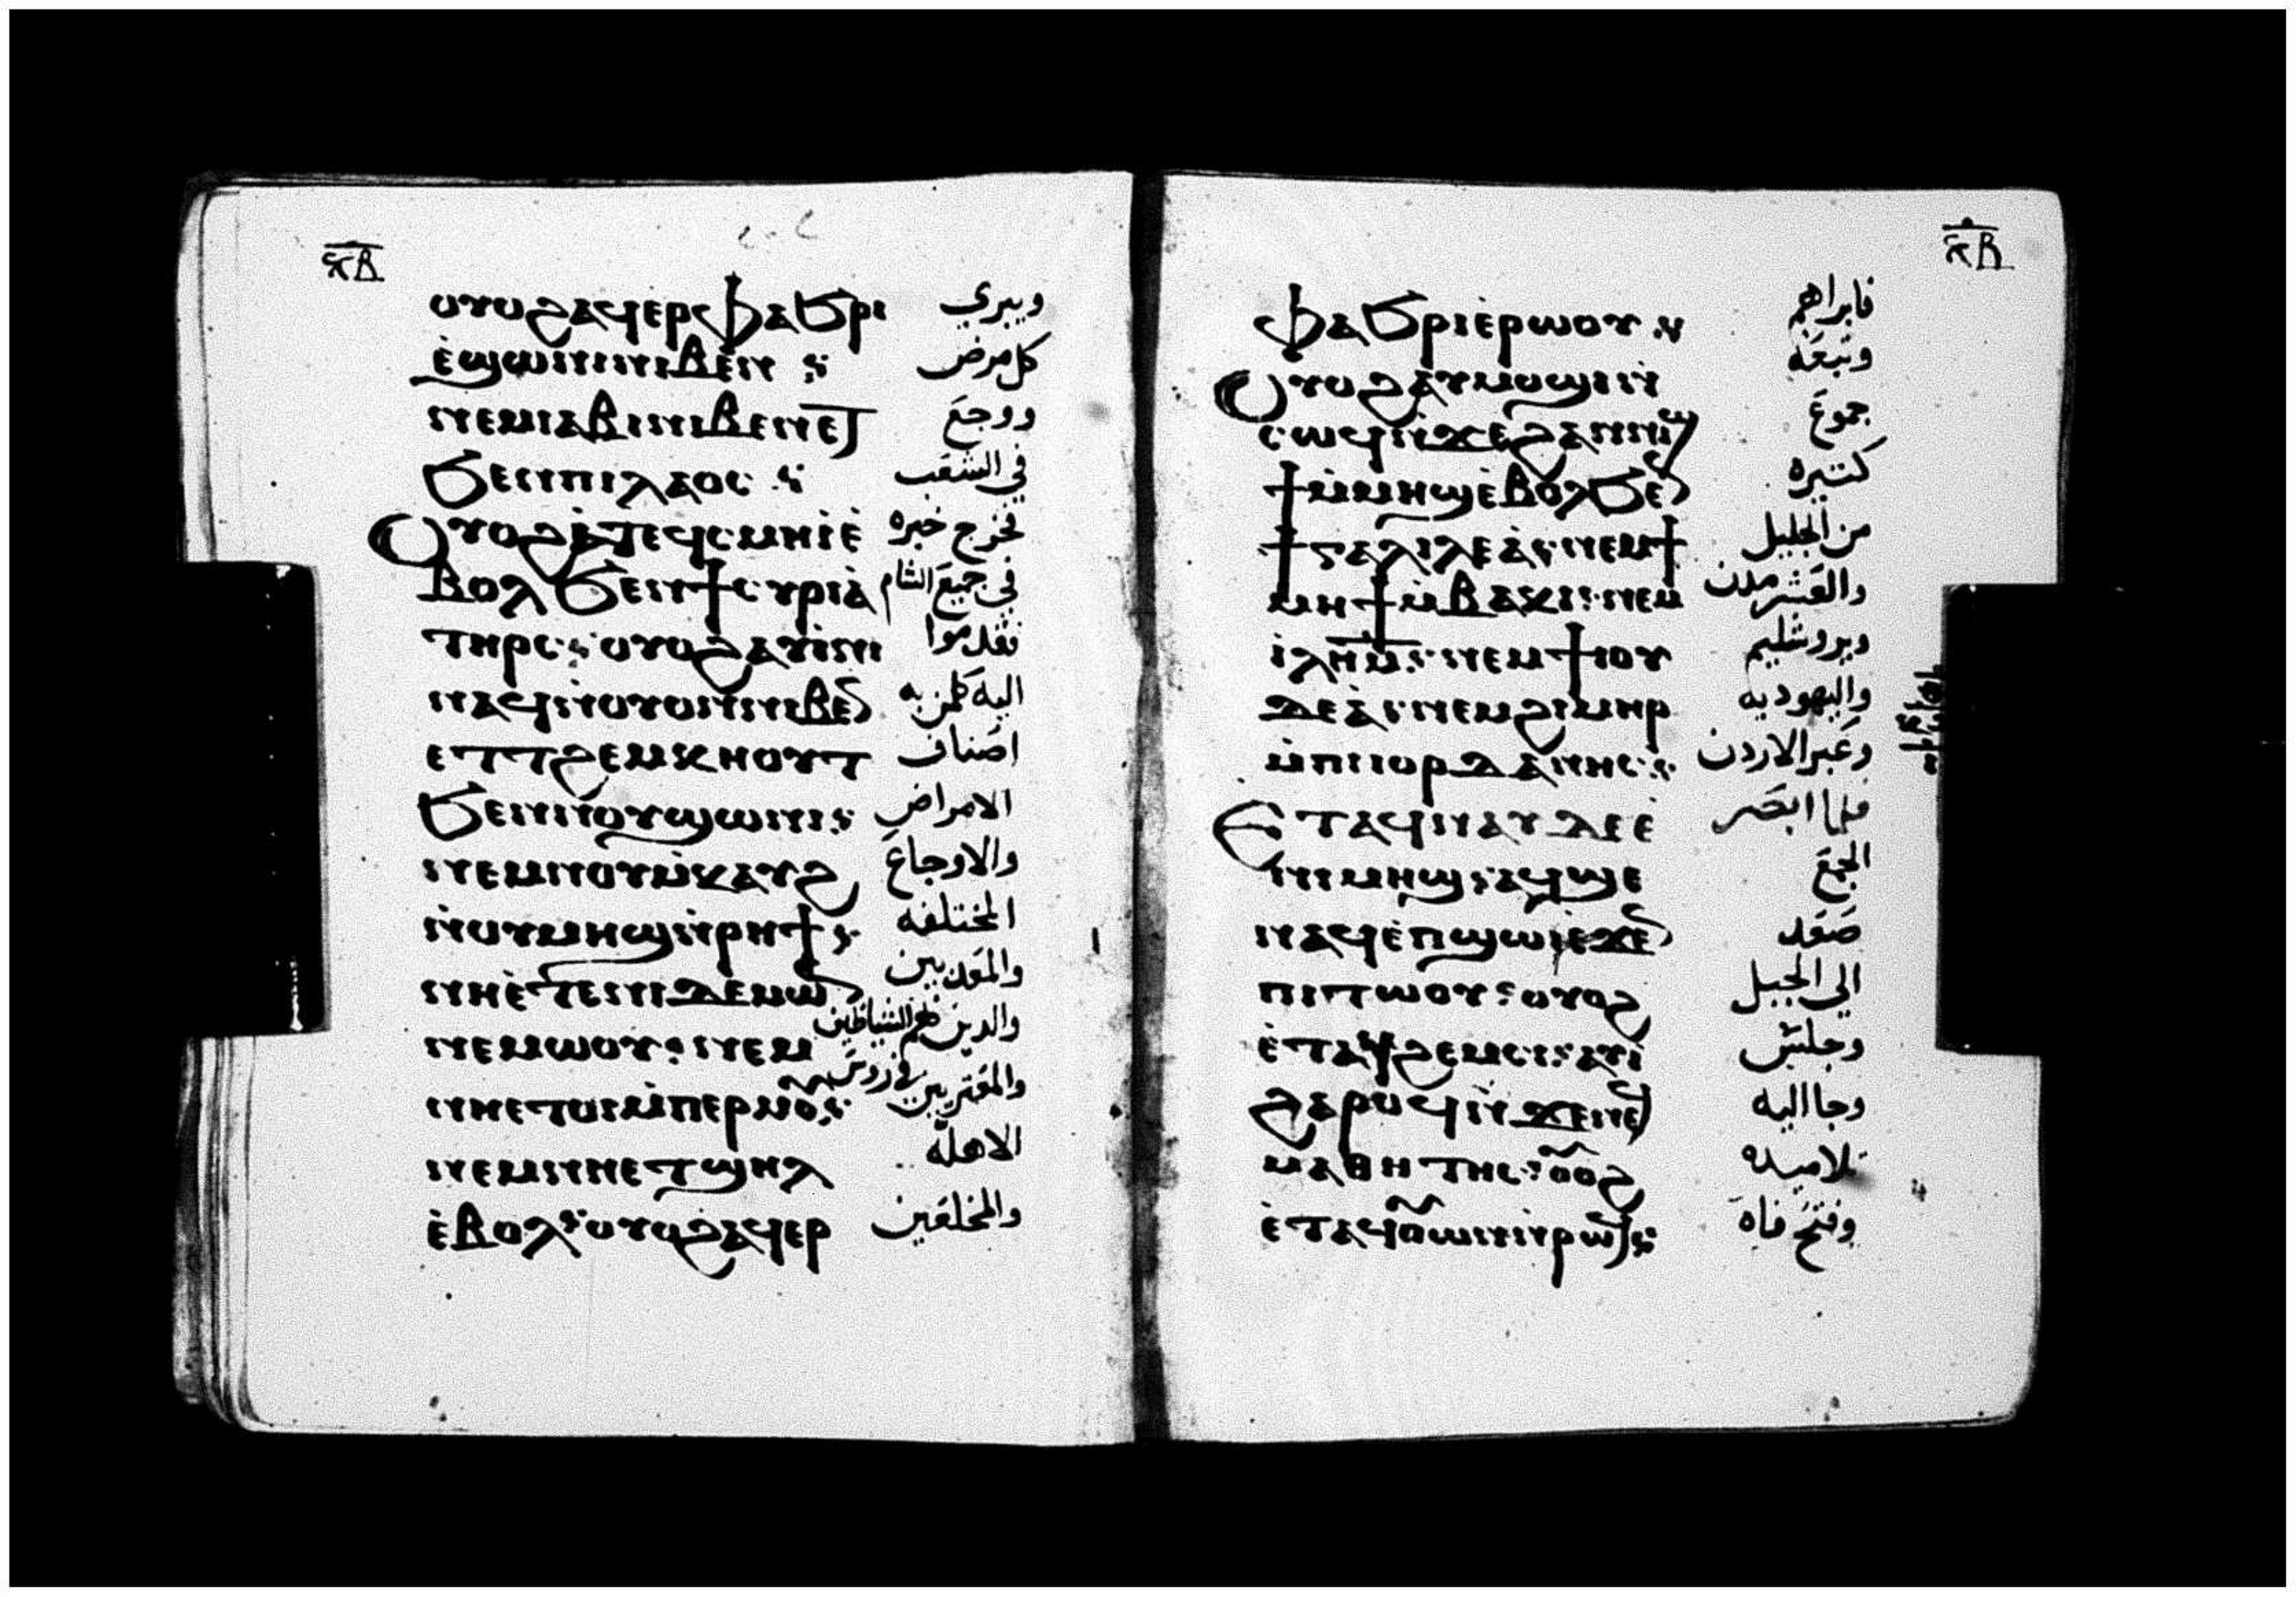 ⲟⲩⲟϩ ⲁϥⲉⲣⲫⲁϧⲣⲓ ويبري
ⲉ̀ϣⲱⲛⲓ ⲛⲓⲃⲉⲛ كل مرض
ⲛⲉⲙ ⲓⲁⲃⲓ ⲛⲓⲃⲉⲛ ⲉⲧ ووجع
ϧⲉⲛ ⲡⲓⲗⲁⲟⲥ في الشعب
ⲟⲩⲟϩ ⲁ̀ⲧⲉϥⲥⲙⲏ ⲓ̀ ⲉ̀ فخرج خبره
ⲃⲟⲗ ϧⲉⲛ ϯⲥⲩⲣⲓⲁ̀ في جميع الشام
ⲧⲏⲣⲥ ⲟⲩⲟϩ ⲁⲩⲓ̀ⲛⲓ فقدموا
ⲛⲁϥ ⲛ̀ⲟⲩⲟⲛ ⲛⲓⲃⲉⲛ اليه كلمن به
ⲉⲧⲧϩⲉⲙⲕⲏⲟⲩⲧ اصناف
ϧⲉⲛ ⲛⲟⲩϣⲱⲛⲓ الامراض
ⲛⲉⲙ ⲛⲟⲩⲙ̀ⲕⲁⲩϩ والاوجاع
ⲛ̀ⲟⲩⲙⲏϣ ⲛ̀ⲣⲏϯ المختلفه
ⲛⲏ ⲉ̀ⲧⲉ ⲛⲓⲇⲉⲙⲱⲛ والمعدبين
ⲛⲉⲙⲱⲟⲩ ⲛⲉⲙ والدين بهم الشياطين
ⲛⲏ ⲉⲧⲟⲓ ⲙ̀ⲡⲉⲣⲙⲟⲩ والمعتريين في روس
ⲛⲉⲙ ⲛⲏ ⲉⲧϣⲏⲗ الاهله
ⲉ̀ⲃⲟⲗ ⲟⲩⲟϩ ⲁϥⲉⲣ والمخلعين
ⲫⲁϧⲣⲓ ⲉ̀ⲣⲱⲟⲩ فابراهم
ⲟⲩⲟϩ ⲁⲩⲙⲟϣⲓ ⲛ̀ وتبعه
ⲥⲱϥ ⲛ̀ϫⲉ ϩⲁⲛⲛⲓϣ جموع
ϯ ⲙ̀ⲙⲏϣ ⲉ̀ⲃⲟⲗ ϧⲉⲛ كتيره
ϯⲅⲁⲗⲓⲗⲉⲁ̀ ⲛⲉⲙ ϯ من الجليل
ⲙⲏϯ ⲙ̀ⲃⲁⲕⲓ ⲛⲉⲙ والعشر مدن
ⲓ̀ⲗⲏⲙ ⲛⲉⲙ ϯⲓⲟⲩ ويروشليم
ⲇⲉⲁ̀ ⲛⲉⲙ ϩⲓⲙⲏⲣ واليهوديه
ⲙ̀ⲡⲓⲓⲟⲣⲇⲁⲛⲏⲥ وعبر الاردن
ⲉⲧⲁϥⲛⲁⲩ ⲇⲉ ⲉ̀ فلما ابصر
ⲛⲓⲙⲏϣ ⲁϥϣⲉ الجمع
ⲛⲁϥ ⲉ̀ⲡϣⲱⲓ ⲉϫⲉⲛ صعد
ⲡⲓⲧⲱⲟⲩ ⲟⲩⲟϩ الي الجبل
ⲉ̀ⲧⲁϥϩⲉⲙⲥⲓ ⲁⲩⲓ̀ وجلس
ϩⲁⲣⲟϥ ⲛ̀ϫⲉ ⲛⲉϥ وجا اليه
ⲙⲁⲑⲏⲧⲏⲥ ⲟⲟϩ تلاميده
ⲉ̀ⲧⲁϥⲟⲩⲱⲛ ⲛ̀ⲣⲱϥ وفتح فاه